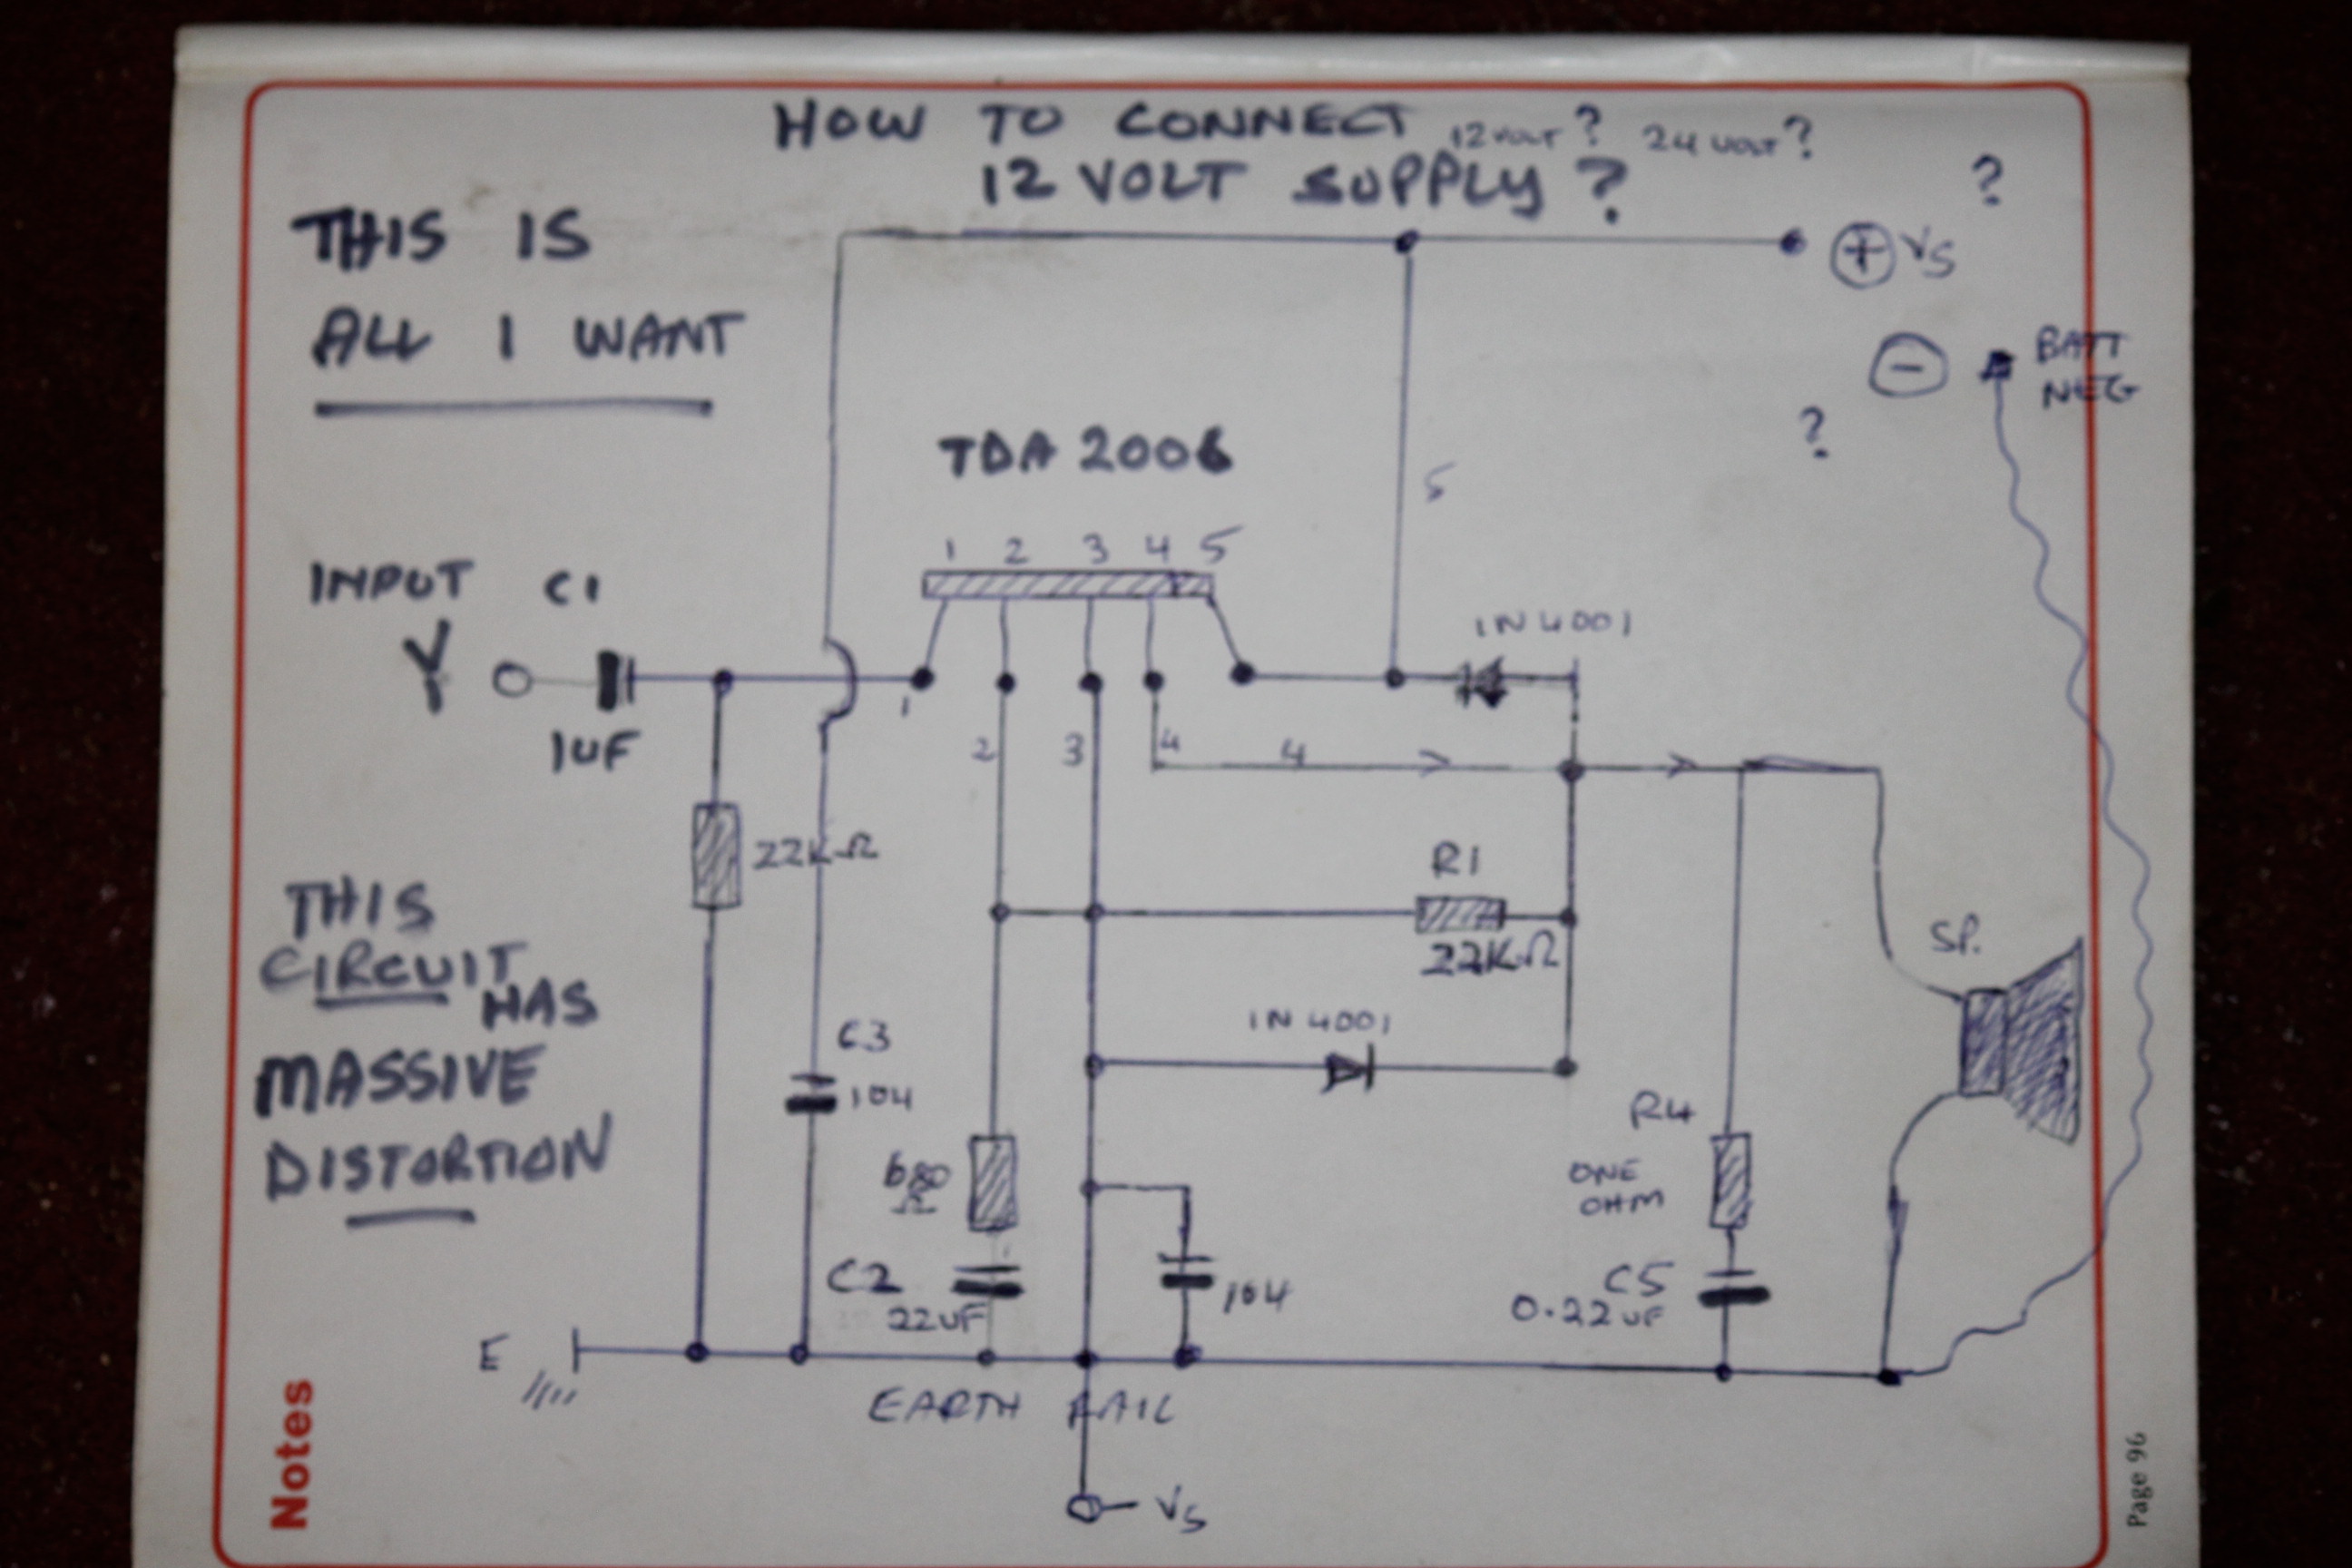 HOW TO CONNECT 12 VOLT? 24 VOLT?
12 VOLT SUPPLY?
?
THIS IS
ALL I WANT
+ VS
- BATT
NEG
?
TDA 2006
5
1 2 3 4 5
INPUT C1
1N4001
1
1UF
2 3 4 4
22KΩ
R1
22KΩ
THIS
CIRCUIT HAS
MASSIVE
DISTORTION
SP.
1N4001
C3
104
R4
ONE
OHM
680
Ω
C2
22UF
104
C5
0.22UF
E
EARTH RAIL
- VS
Notes
Page 96